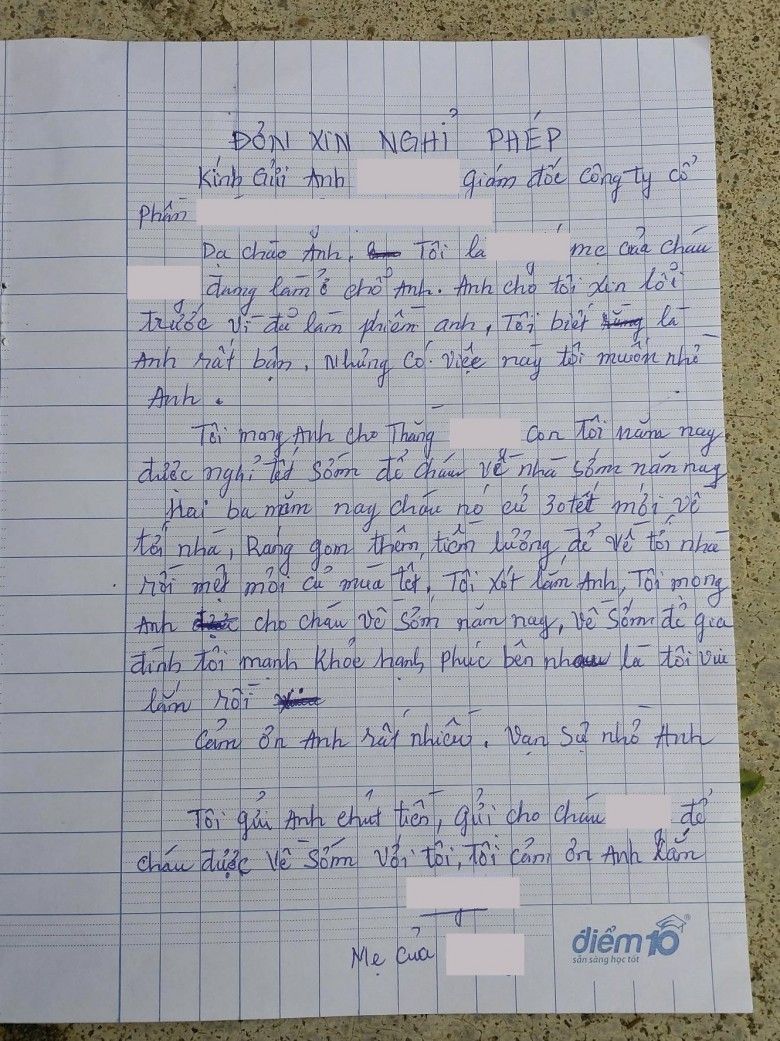 ĐỞN XIN NGHỈ PHÉP
Kính Gửi Anh giám đốc công ty cổ
phần
Dạ chào Anh, Tôi là mẹ của cháu
đang làm ở chổ Anh. Anh chọ tôi xin lỗi
trước vì đả làm phiền anh, Tôi biết là
Anh rất bận. Nhưng có việc này tôi muốn nhờ
Anh.
Tôi mong Anh cho Thằng con tôi năm nay
được nghỉ tết sớm để cháu về nhà sớm năm nay
Hai ba năm nay cháu nó cứ 30 tết mới về
tới nhà, Ráng gom thêm tiền lương để về tới nhà
rồi mệt mỏi cả mùa tết, Tôi xót lắm Anh, Tôi mong
Anh cho cháu về sớm năm nay, về sớm để gia
đình tôi mạnh khỏe hạnh phúc bên nhau là tôi vui
lắm rồi
Cảm ơn Anh rất nhiều. Vạn sự nhờ Anh
Tôi gửi Anh chút tiền, gửi cho cháu để
cháu được về sớm với tôi, Tôi cảm ơn Anh lắm
Mẹ của
điểm10®
sẵn sàng học tốt